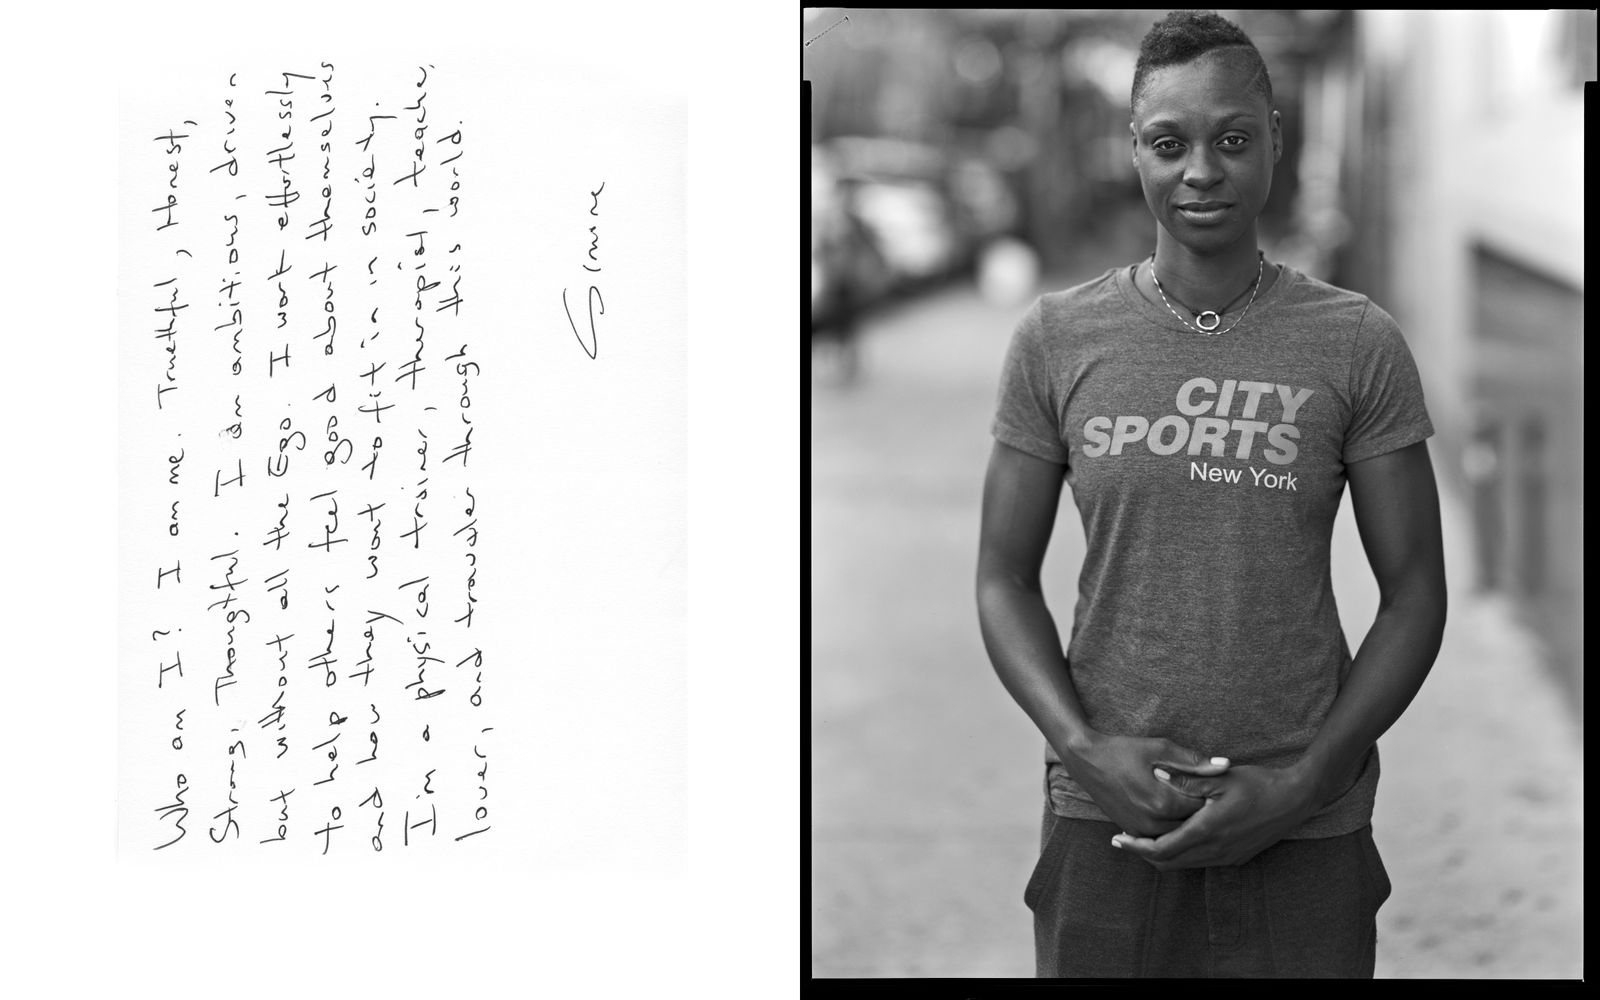 Who am I? I am me. Truethful, Honest,
Strong, Thoughtful. I am ambitious, driven
but without all the Ego. I work effortlessly
to help others feel good about themselves
and how they want to fit in in society.
I'm a physical trainer, therapist, teacher,
lover, and traveler through this world.
Simone
CITY
SPORTS
New York